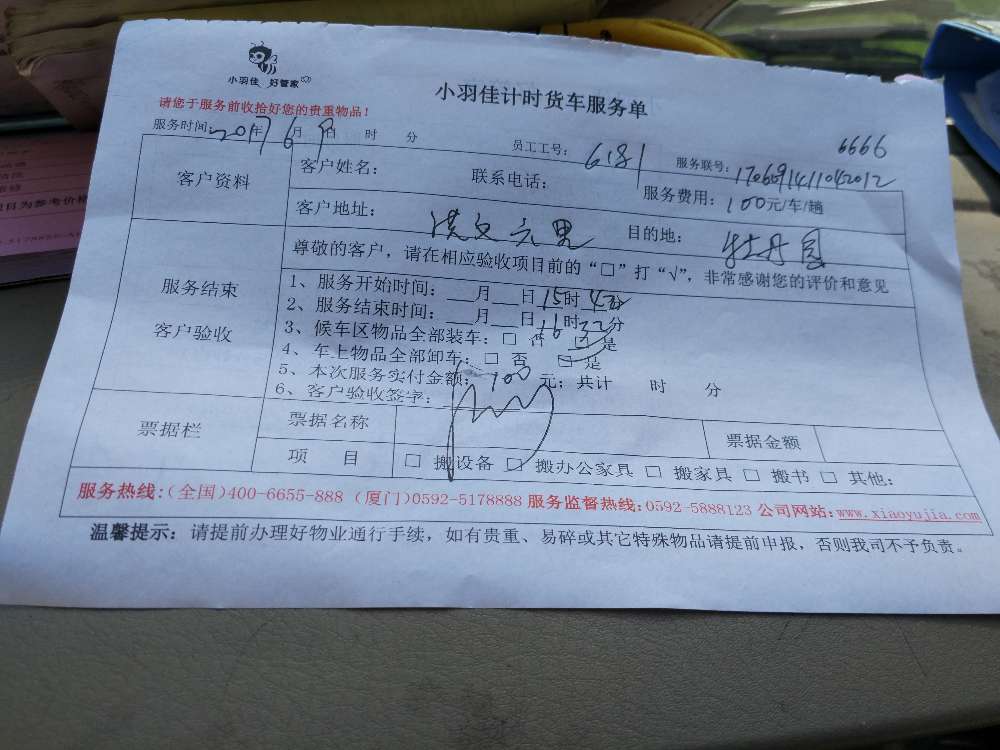 小羽佳 好管家
小羽佳计时货车服务单
请您于服务前收拾好您的贵重物品！
6666
服务时间：2017年6月9日 时 分 员工工号：6181 服务联号：1706091411042012
客户资料 客户姓名： 联系电话： 服务费用：100元/车/趟
客户地址：洪文六里 目的地：牡丹园
服务结束
客户验收
尊敬的客户，请在相应验收项目前的“□”打“√”，非常感谢您的评价和意见
1、服务开始时间：___月___日15时4分
2、服务结束时间：___月___日16时32分
3、候车区物品全部装车：□ 否 □ 是
4、车上物品全部卸车：□ 否 □ 是
5、本次服务实付金额：100元；共计 时 分
6、客户验收签字：
票据栏 票据名称 票据金额
项 目 □ 搬设备 □ 搬办公家具 □ 搬家具 □ 搬书 □ 其他：
服务热线：（全国）400-6655-888（厦门）0592-5178888 服务监督热线：0592-5888123 公司网站：www.xiaoyujia.com
温馨提示：请提前办理好物业通行手续，如有贵重、易碎或其它特殊物品请提前申报，否则我司不予负责。